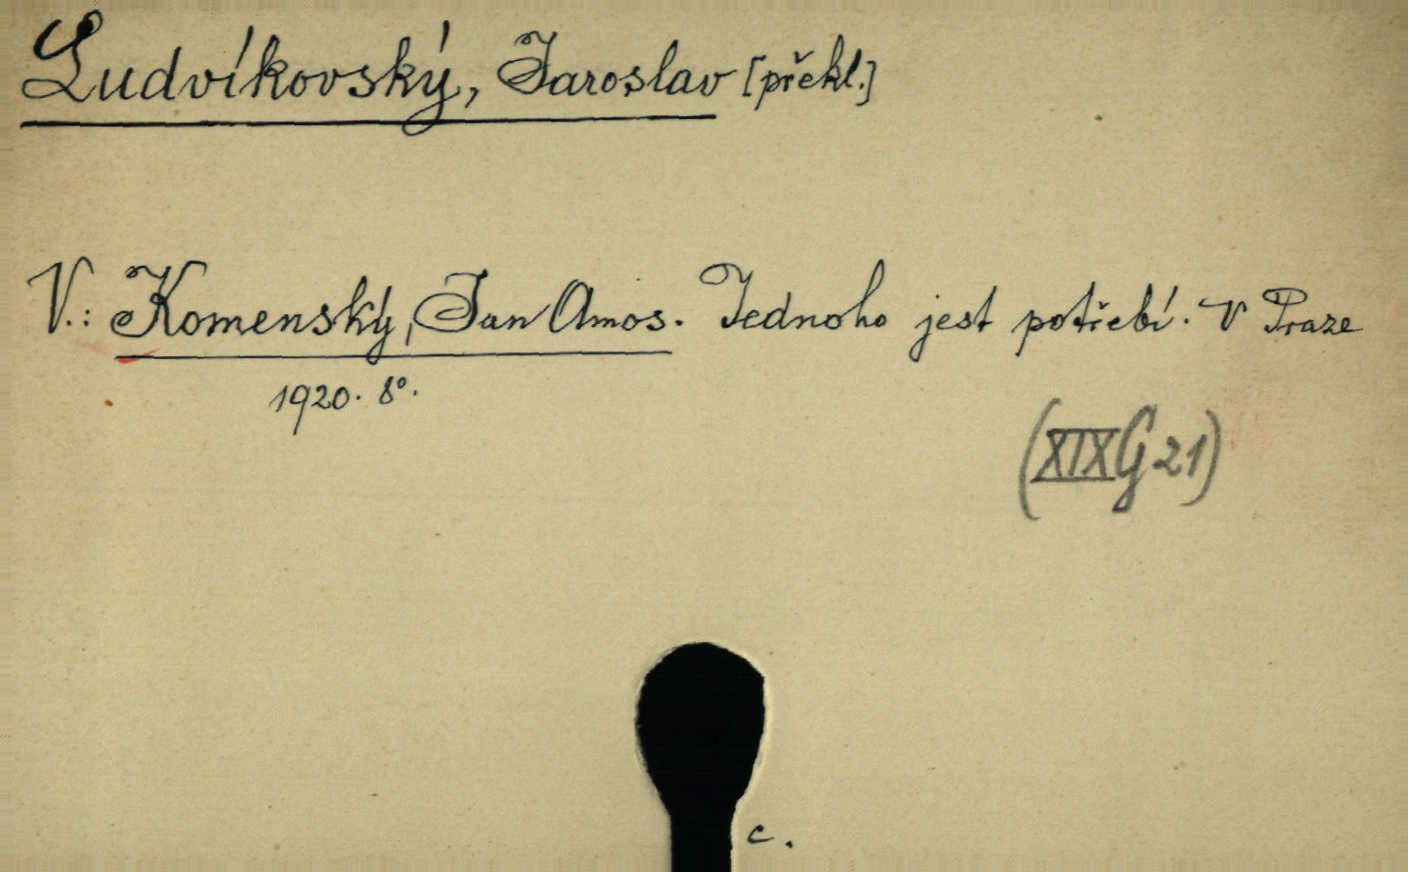 Ludvíkovský, Jaroslav [překl.]
V.: Komenský, Jan Amos. Jednoho jest potřebí. V Praze
1920. 8°.
(XIX G 21)
c.